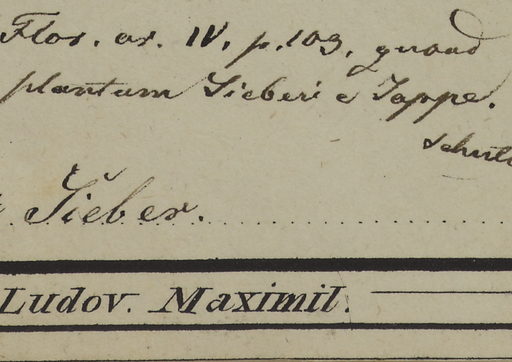 Flor. or. IV. p. 103. quoad
plantam Sieberi e Joppe.
Sieber.
Ludov. Maximil.